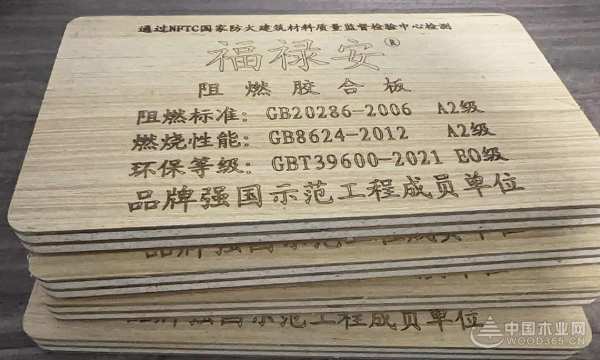 通过NFTC国家防火建筑材料质量监督检验中心检测
福禄安®
阻燃胶合板
阻燃标准：GB20286-2006 A2级
燃烧性能：GB8624-2012 A2级
环保等级：GBT39600-2021 E0级
品牌强国示范工程成员单位
品牌强国示范工程成员单位
品牌强国示范工程成员单位
中国木业网
WOOD365.CN